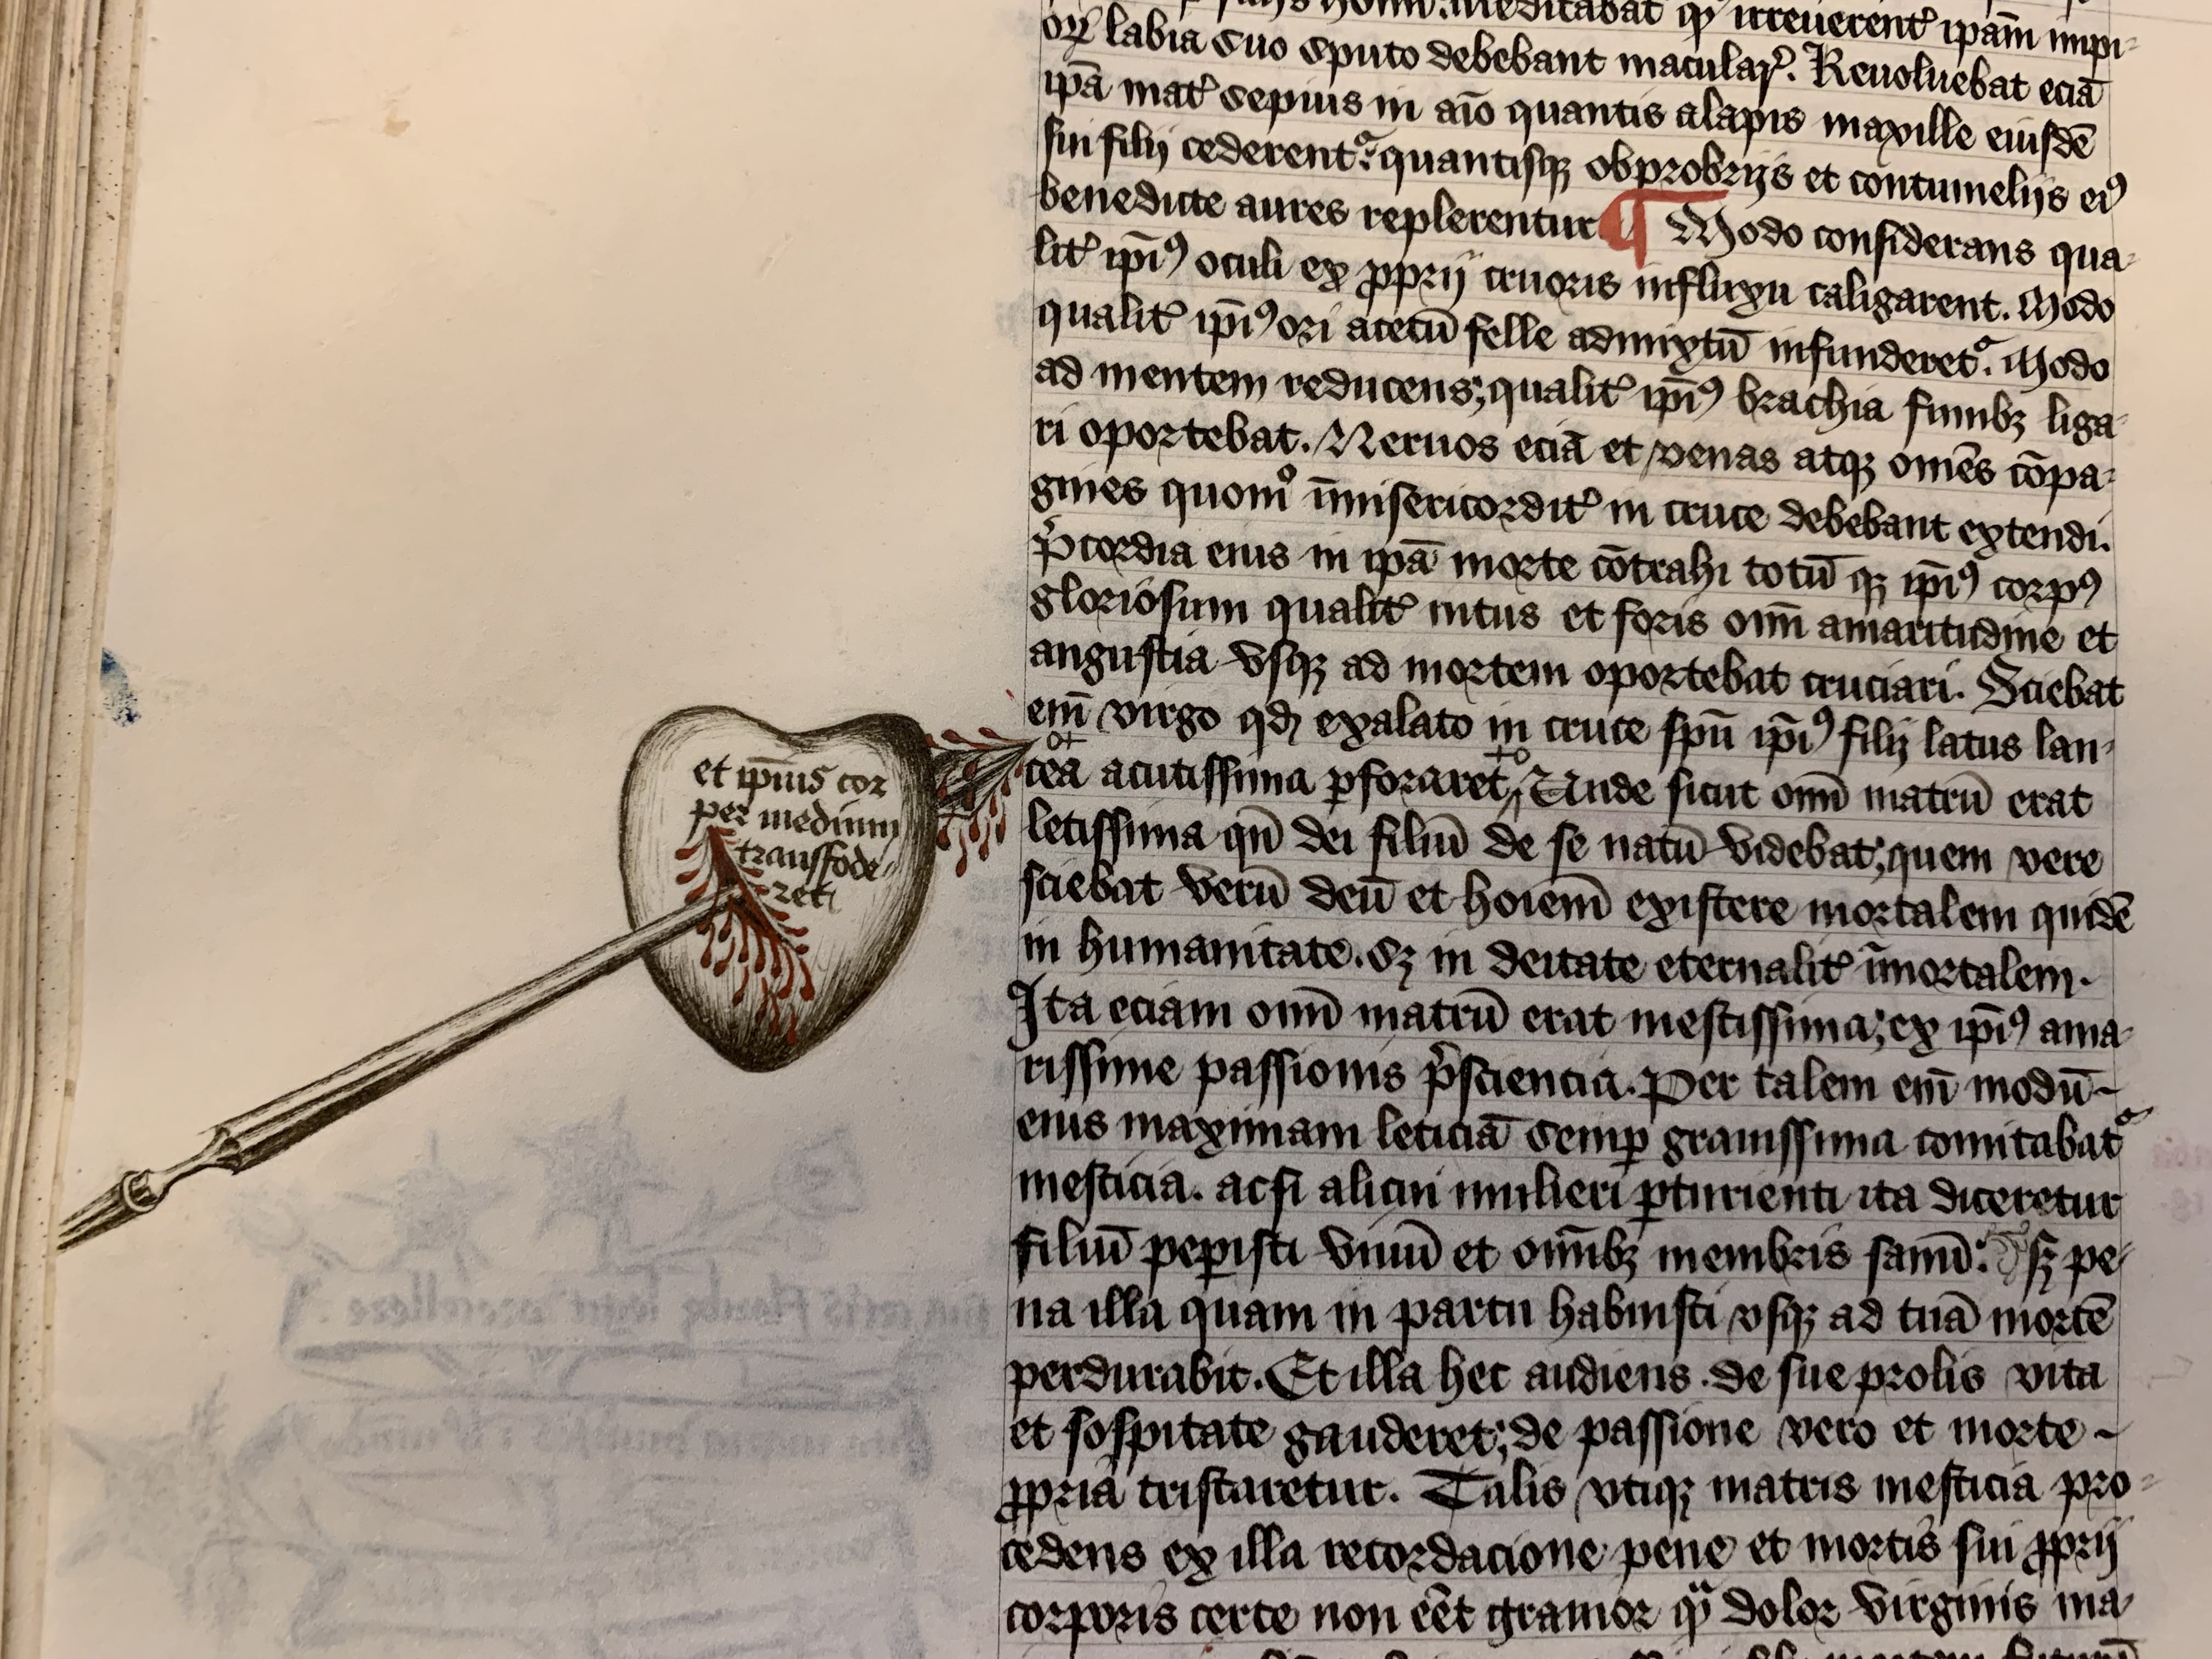 meditabat qͥ irreuerent᷒ ipam̄ impi-
oꝝ labia suo sputo debebant maculaꝛ᷒. Reuoluebat eciā
ipā mat᷒ sepius in aīo quantis alapis maxille eiusdē
sui filij cederent᷒. quantisqꝫ obprobrijs et contumelijs eiꝰ
benedicte aures replerentur ¶ Modo considerans qua-
lit᷒ ip̄iꝰ oculi ex ꝓprij cruoris influxu caligarent. Modo
qualit᷒ ip̄iꝰ ori acetū felle admixtū infunderet᷒. Modo
ad mentem reducens; qualit᷒ ip̄iꝰ brachia funibꝫ liga-
ri oportebat. Neruos eciā et venas atqꝫ om̄es cōpa-
gines quomͦ īmisericordit᷒ in cruce debebant extendi.
p̄cordia eius in ipā morte cōtrahi totū qꝫ ip̄iꝰ corpꝰ
gloriosum qualit᷒ intus et foris om̄i amaritudine et
angustia vsqꝫ ad mortem oportebat cruciari. Sciebat
em̄ virgo qd exalato in cruce spū ip̄iꝰ filij latus lan-
cea acutissima ꝑforaret, Unde sicut om̄i matrū erat
et ip̄ius cor
per medium
transfode-
ret
letissima qn̄ dei filiū de se natū videbat; quem vere
sciebat verū deū et hoiem̄ existere mortalem quidē
in humanitate. sꝫ in deitate eternalit᷒ īmortalem.
Ita eciam om̄i matrū erat mestissima; ex ip̄iꝰ ama-
rissime passionis p̄sciencia. Per talem em̄ modū
eius maximam leticiā semꝑ grauissima comitabat᷒
mesticia. acsi alicui mulieri ꝑturienti ita diceretur
filiū peperisti viuū et om̄ibꝫ membris sanū. sꝫ pe-
na illa quam in partu habuisti vsqꝫ ad tuā mortē
perdurabit. Et illa hec audiens. de sue prolis vita
et sospitate gauderet; de passione vero et morte
ꝓpria tristaretur. Talis vtiqꝫ matris mesticia pro-
cedens ex illa recordacione pene et mortis sui ꝓprij
corporis certe non eēt grauior qͣ dolor virginis ma-